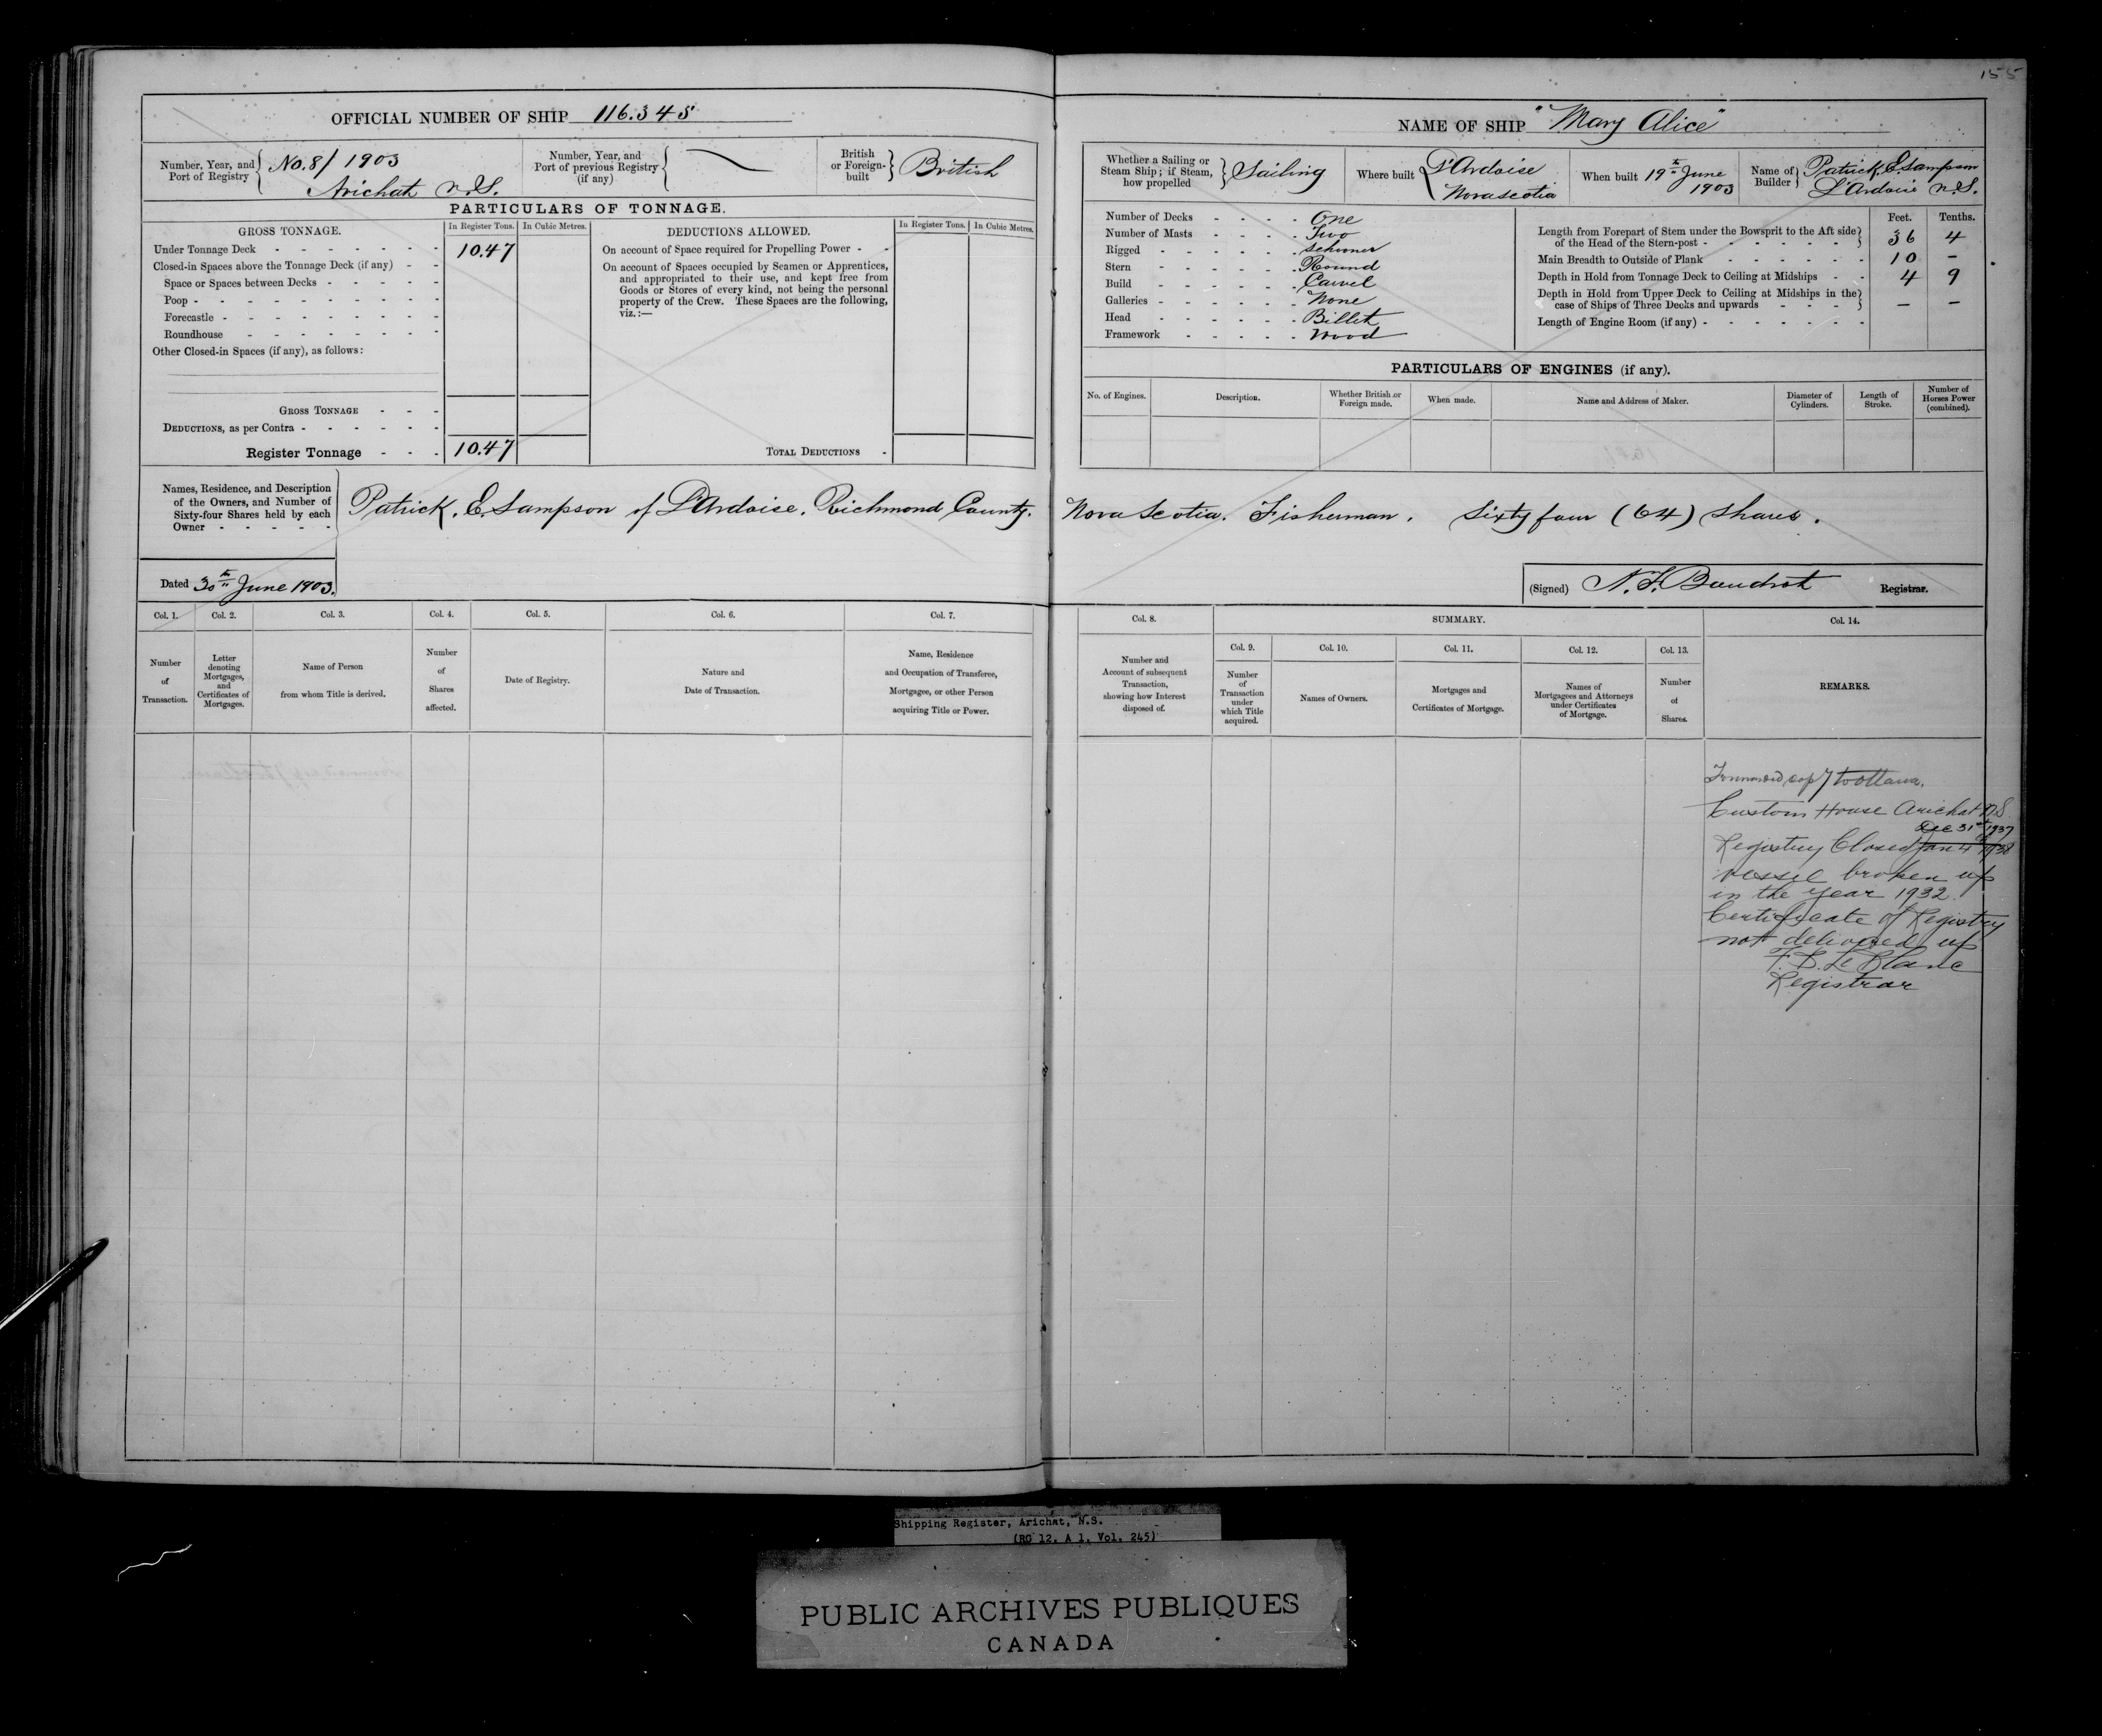 155
OFFICIAL NUMBER OF SHIP 116.345
Number, Year, and Port of Registry { No. 8/1903
Arichat N.S.
Number, Year, and Port of previous Registry (if any) {
British or Foreign-built } British
PARTICULARS OF TONNAGE.
GROSS TONNAGE.
In Register Tons.
In Cubic Metres.
Under Tonnage Deck - - - - - - - 10.47
Closed-in Spaces above the Tonnage Deck (if any) - -
Space or Spaces between Decks - - - - -
Poop - - - - - - - - -
Forecastle - - - - - - - -
Roundhouse - - - - - - -
Other Closed-in Spaces (if any), as follows:
GROSS TONNAGE - - -
DEDUCTIONS, as per Contra - - - - - -
Register Tonnage - - - 10.47
DEDUCTIONS ALLOWED.
In Register Tons.
In Cubic Metres.
On account of Space required for Propelling Power - -
On account of Spaces occupied by Seamen or Apprentices,
and appropriated to their use, and kept free from
Goods or Stores of every kind, not being the personal
property of the Crew. These Spaces are the following,
viz.:—
TOTAL DEDUCTIONS -
NAME OF SHIP "Mary Alice"
Whether a Sailing or Steam Ship; if Steam, how propelled } Sailing
Where built { L'Ardoise
Nova Scotia
When built 19th June
1903
Name of Builder } Patrick E. Sampson
L'Ardoise N.S.
Number of Decks - - - - One
Number of Masts - - - - Two
Rigged - - - - - Schooner
Stern - - - - - Round
Build - - - - - Carvel
Galleries - - - - - None
Head - - - - - Billet
Framework - - - - Wood
Feet. Tenths.
Length from Forepart of Stem under the Bowsprit to the Aft side
of the Head of the Stern-post - - - - - - } 36 4
Main Breadth to Outside of Plank - - - - - - - 10 -
Depth in Hold from Tonnage Deck to Ceiling at Midships - - 4 9
Depth in Hold from Upper Deck to Ceiling at Midships in the
case of Ships of Three Decks and upwards - - - - } - -
Length of Engine Room (if any) - - - - - - -
PARTICULARS OF ENGINES (if any).
No. of Engines.
Description.
Whether British or Foreign made.
When made.
Name and Address of Maker.
Diameter of Cylinders.
Length of Stroke.
Number of Horses Power (combined).
Names, Residence, and Description
of the Owners, and Number of
Sixty-four Shares held by each
Owner - - - - -
Patrick. E. Sampson of L'Ardoise. Richmond County. Nova Scotia. Fisherman. Sixty four (64) shares.
Dated 30th June 1903.
(Signed) Registrar.
Col. 1.
Col. 2.
Col. 3.
Col. 4.
Col. 5.
Col. 6.
Col. 7.
Number of Transaction.
Letter denoting Mortgages, and Certificates of Mortgages.
Name of Person from whom Title is derived.
Number of Shares affected.
Date of Registry.
Nature and Date of Transaction.
Name, Residence and Occupation of Transferee, Mortgagee, or other Person acquiring Title or Power.
Col. 8.
SUMMARY.
Col. 14.
Col. 9.
Col. 10.
Col. 11.
Col. 12.
Col. 13.
Number and Account of subsequent Transaction, showing how Interest disposed of.
Number of Transaction under which Title acquired.
Names of Owners.
Mortgages and Certificates of Mortgage.
Names of Mortgagees and Attorneys under Certificates of Mortgage.
Number of Shares.
REMARKS.
Forwarded copy to Ottawa.
Custom House Arichat N.S
Dec 31st 1937
Registry Closed Jan 4th 1938
vessel broken up
in the year 1932.
Certificate of Registry
not delivered up
Le Blanc
Registrar
Shipping Register, Arichat, N.S.
(RG 12, A 1, Vol. 245)
PUBLIC ARCHIVES PUBLIQUES
CANADA